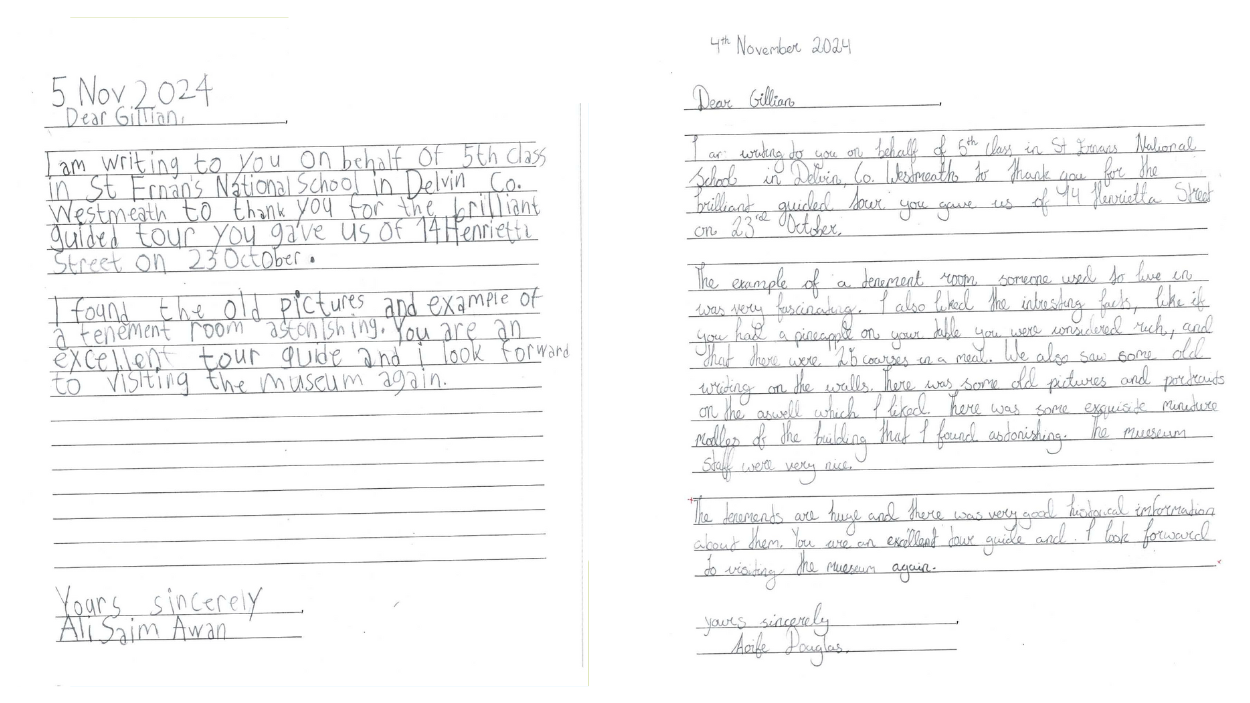 5 Nov 2024
Dear Gillian,
I am writing to you on behalf of 5th class
in St Ernan's National School in Delvin Co.
Westmeath to thank you for the brilliant
guided tour you gave us of 14 Henrietta
Street on 23 October.
I found the old pictures and example of
a tenement room astonishing. You are an
excellent tour guide and i look forward
to visiting the museum again.
Yours sincerely
Ali Saim Awan
4th November 2024
Dear Gillian
I am writing to you on behalf of 5th class in St Ernans National
School in Delvin, Co. Westmeath to thank you for the
brilliant guided tour you gave us of 14 Henrietta Street
on 23rd October.
The example of a tenement room someone used to live in
was very fascinating. I also liked the intresting facts, like if
you had a pineapple on your table you were considered rich, and
that there were 25 courses in a meal. We also saw some old
writing on the walls. There was some old pictures and portraits
on the aswell which I liked. There was some exquisite minuture
modles of the building that I found astonishing. The mueseum
staff were very nice.
The tenements are huge and there was very good historical imformation
about them. You are an excellent tour guide and I look forward
to visiting the mueseum again.
yours sincerely
Aoife Douglas.